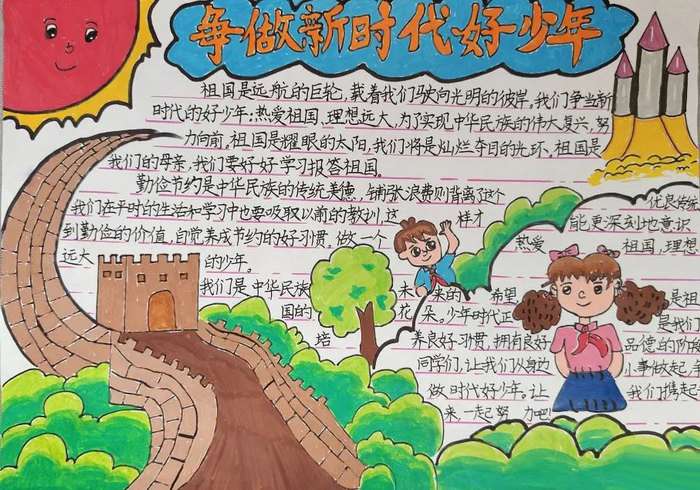 争做新时代好少年
祖国是远航的巨轮,载着我们驶向光明的彼岸,我们争当新
时代的好少年:热爱祖国,理想远大,为了实现中华民族的伟大复兴,努
力向前。祖国是耀眼的太阳,我们将是灿烂夺目的光环。祖国是
我们的母亲,我们要好好学习报答祖国。
勤俭节约是中华民族的传统美德,铺张浪费则背离了这个 优良传统
我们在平时的生活和学习中也要吸取以前的教训,这 样才 能更深刻地意识
到勤俭的价值,自觉养成节约的好习惯。做一个 热爱 祖国,理想
远大 的少年。
我们是中华民族 未 来的 希望 是祖
国的 花 朵。少年时代正 是我们
培 养良好习惯,拥有良好 品德的阶段
同学们,让我们从身边 小事做起,争
做时代好少年。让 我们携起
来一起努 力吧!